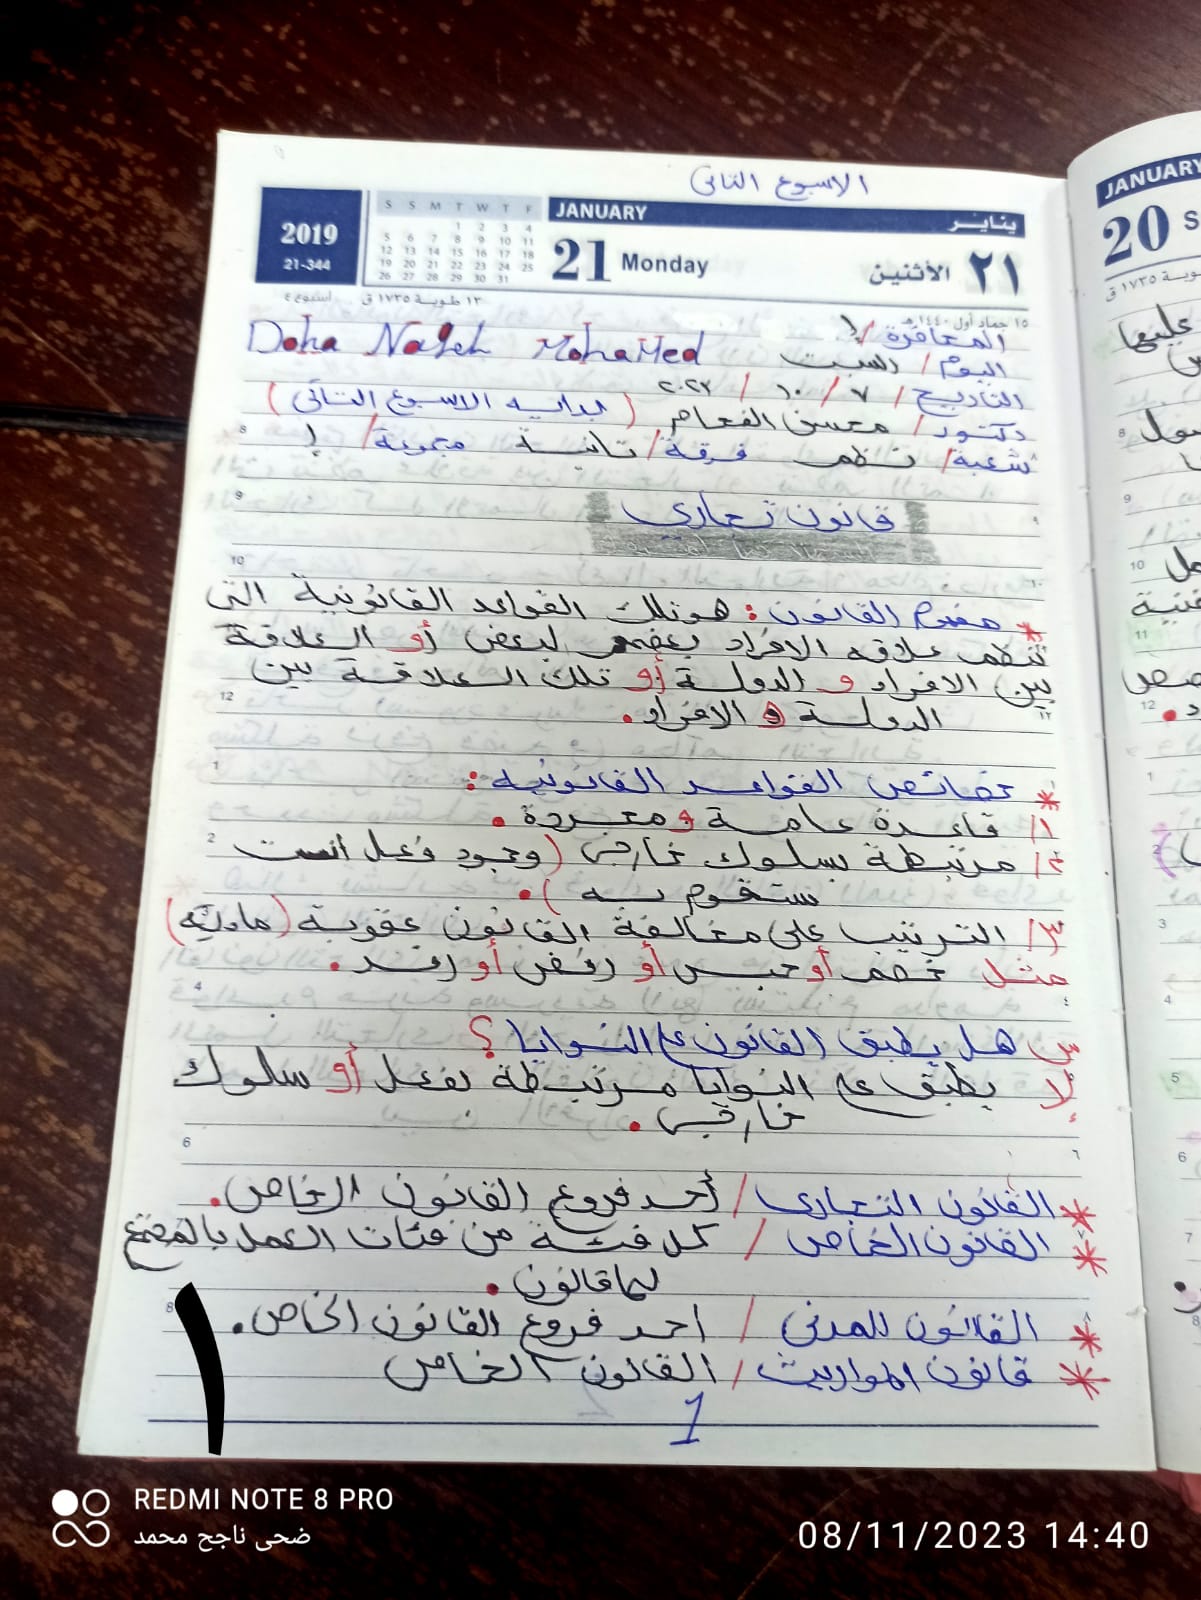 الاسبوع التانى
2019
21-344
S S M T W T F
1 2 3 4
5 6 7 8 9 10 11
12 13 14 15 16 17 18
19 20 21 22 23 24 25
26 27 28 29 30 31
JANUARY يناير
21 Monday الأثنين ٢١
١٣ طوبة ١٧٣٥ ق أسبوع ٤
١٥ جماد أول ١٤٤٠هـ
المحاضرة / ١
Doha Nageh Mohamed
اليوم / السبت
التاريخ / ٧ / ١٠ / ٢٠٢٣ (بدايه الاسبوع التانى)
دكتور / محسن الفحام
شعبة / نظم فرقة / تانية مجموعة / ١
قانون تجاري
* مفهوم القانون : هو تلك القواعد القانونية التى
تنظم علاقه الافراد بعضهم لبعض أو العلاقة
بين الافراد و الدولة أو تلك العلاقة بين
الدولة و الافراد .
* خصائص القواعد القانونيه :
١/ قاعدة عامة و مجردة .
٢/ مرتبطة بسلوك خارجى (وجود فعل انت
ستقوم به ) .
٣/ الترتيب على مخالفة القانون عقوبة (ماديه)
مثل خصم أو حبس أو رفض أو رفد .
س هل يطبق القانون ع النوايا ؟
لا يطبق ع النوايا مرتبطة بفعل أو سلوك
خارجى .
* القانون التجارى / أحد فروع القانون الخاص .
* القانون الخاص / كل فئة من فئات العمل بالمجتمع
لها قانون .
* القانون المدنى / احد فروع القانون الخاص .
* قانون المواريث / القانون الخاص
1
١
JANUARY
20 S
REDMI NOTE 8 PRO
ضحى ناجح محمد
08/11/2023 14:40